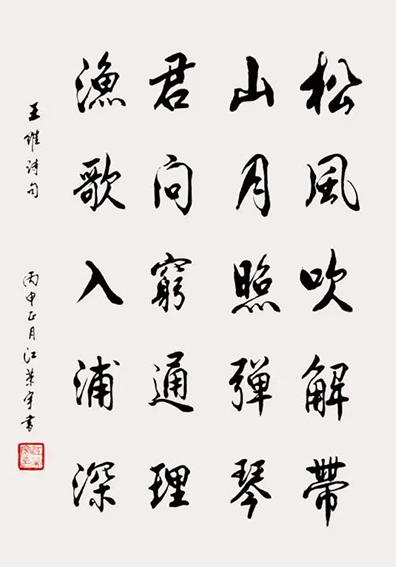 松風吹解帶
山月照彈琴
君問窮通理
漁歌入浦深
王維诗句
丙申正月江荣宇書